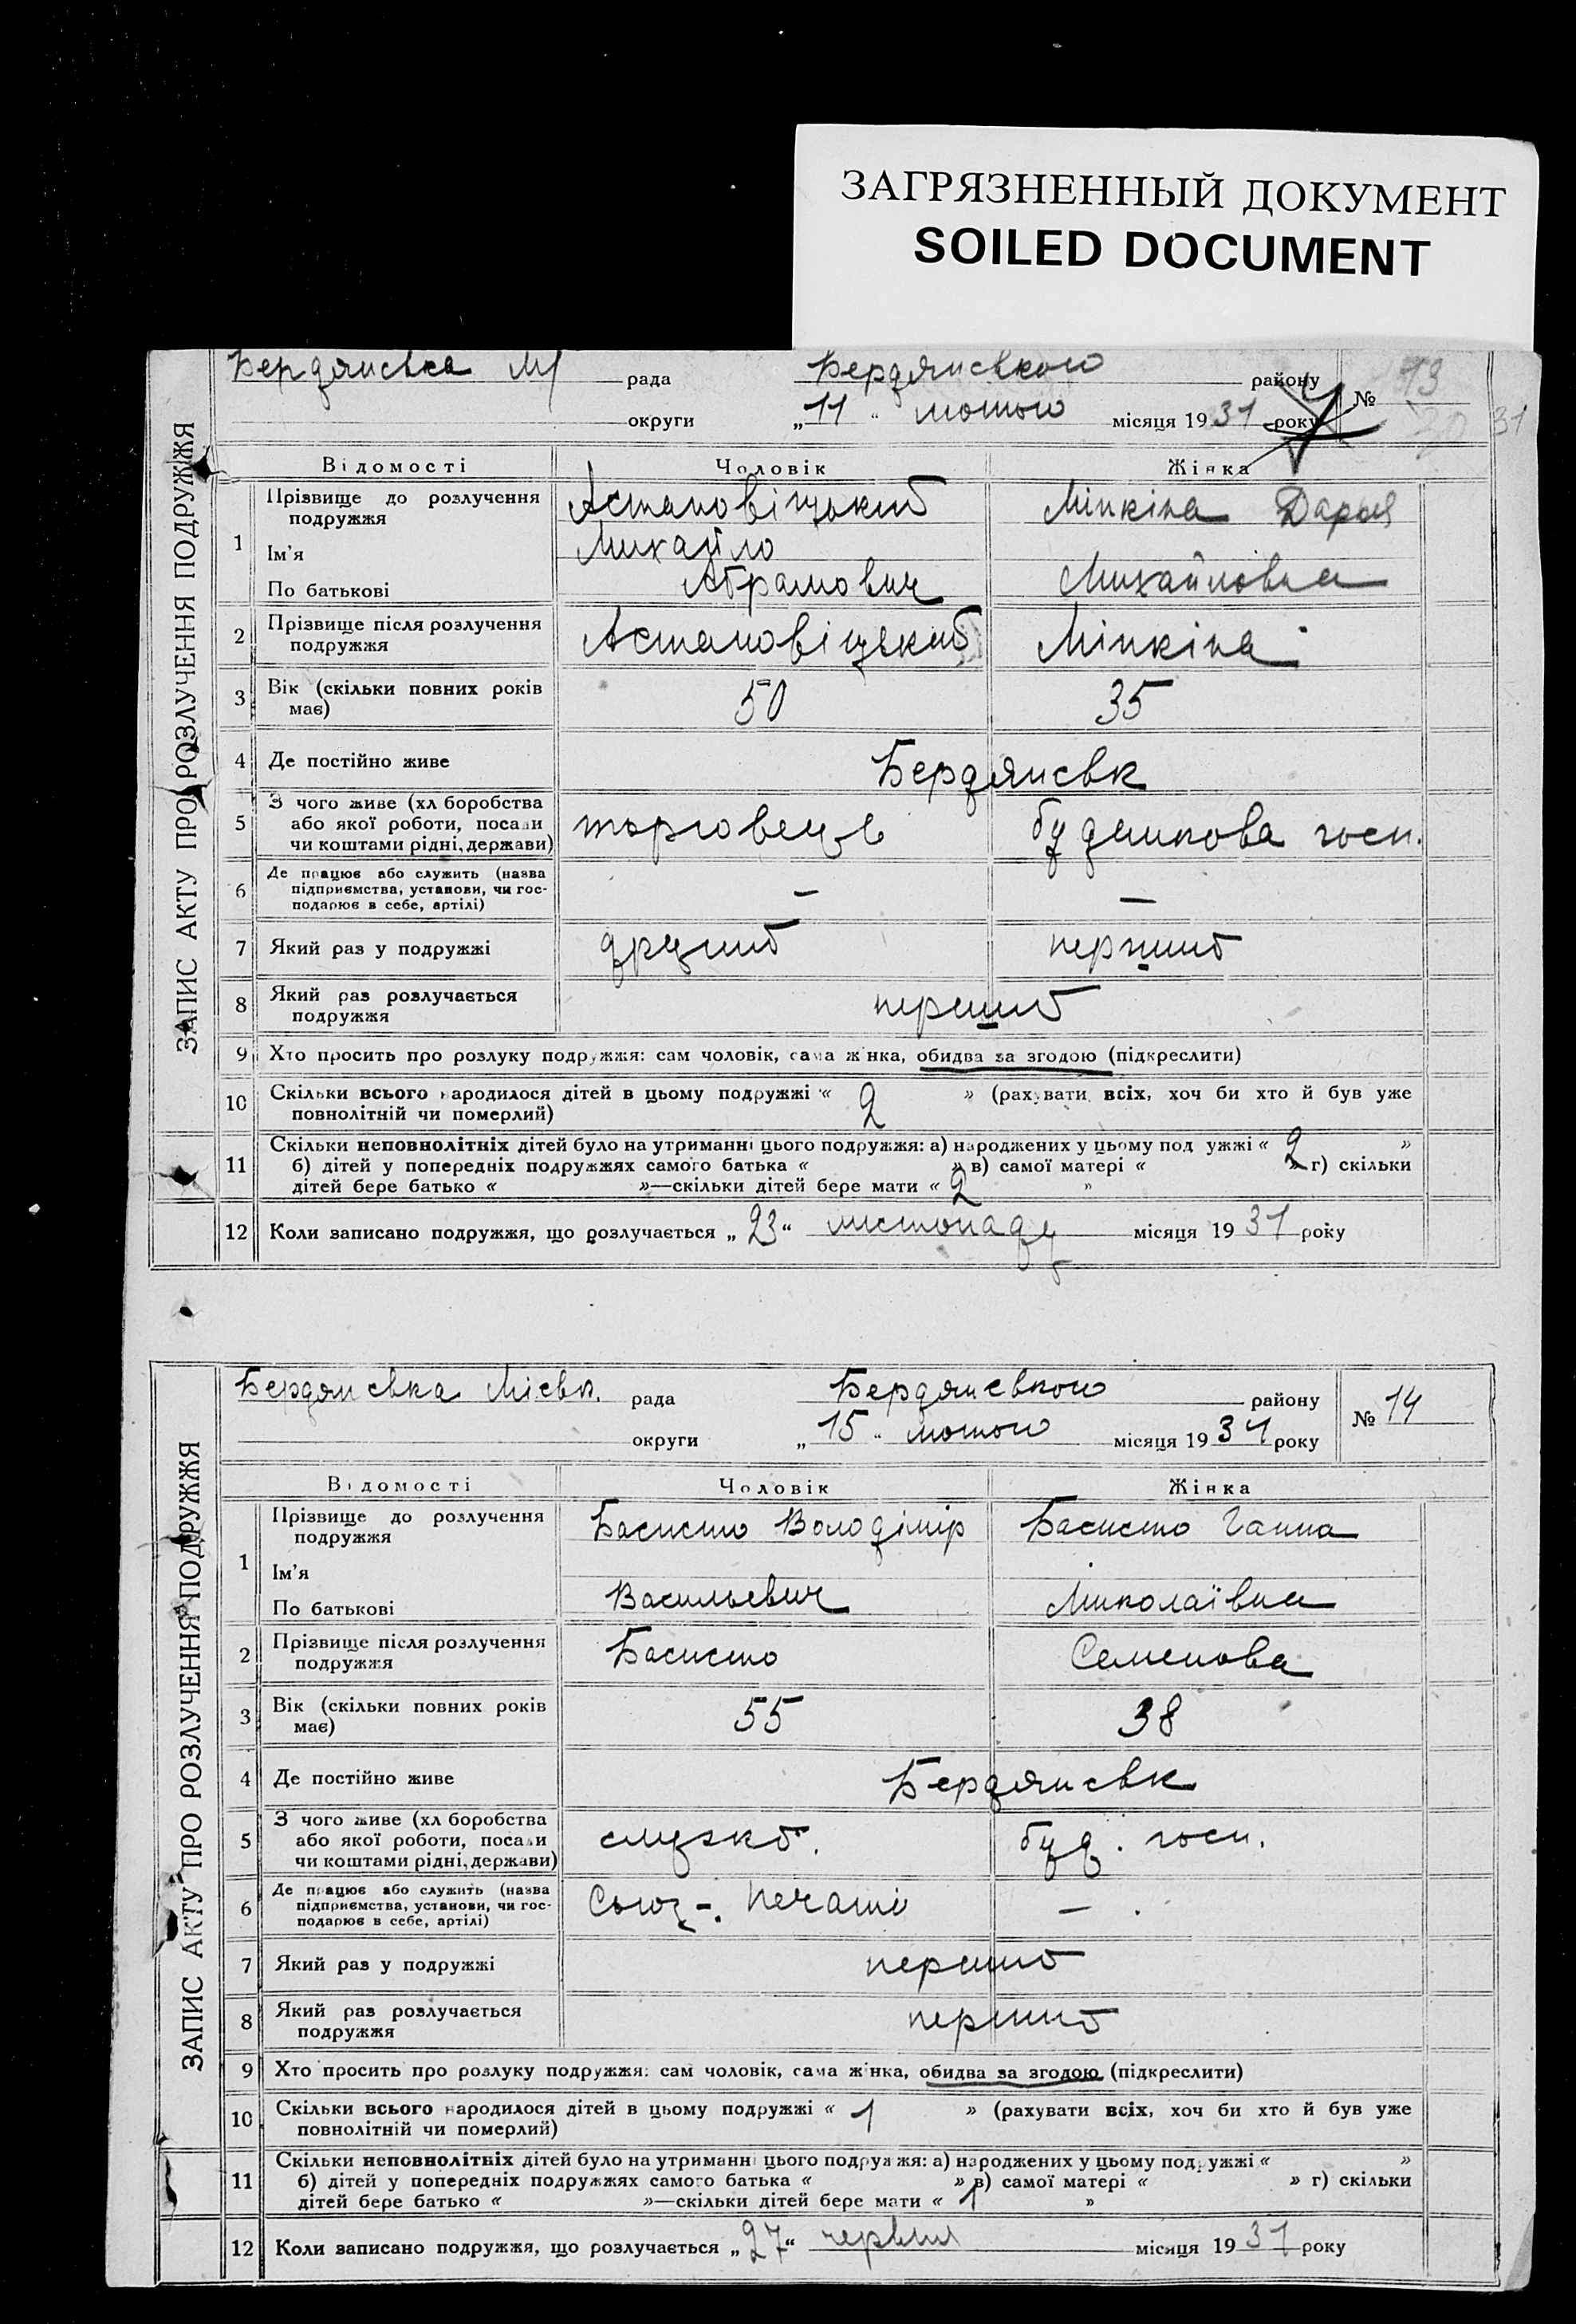 ЗАГРЯЗНЕННЫЙ ДОКУМЕНТ
SOILED DOCUMENT
ЗАПИС АКТУ ПРО РОЗЛУЧЕННЯ ПОДРУЖЖЯ
Бердянська М/ рада Бердянського району № 13
округи „11" лютого місяця 1931 року 31
Відомості Чоловік Жінка
1 Прізвище до розлучення подружжя Астановіцький Мінкіна Дарья
Ім'я Михайло
По батькові Абрамович Михайловна
2 Прізвище після розлучення подружжя Астановіцький Мінкіна
3 Вік (скільки повних років має) 50 35
4 Де постійно живе Бердянськ
5 З чого живе (хліборобства або якої роботи, посади чи коштами рідні, держави) торговець будинкова госп.
6 Де працює або служить (назва підприємства, установи, чи господарює в себе, артілі) — —
7 Який раз у подружжі другий перший
8 Який раз розлучається подружжя перший
9 Хто просить про розлуку подружжя: сам чоловік, сама жінка, обидва за згодою (підкреслити)
10 Скільки всього народилося дітей в цьому подружжі « 2 » (рахувати всіх, хоч би хто й був уже
повнолітній чи померлий)
11 Скільки неповнолітніх дітей було на утриманні цього подружжя: а) народжених у цьому подружжі « 2 »
б) дітей у попередніх подружжях самого батька « » в) самої матері « » г) скільки
дітей бере батько « »—скільки дітей бере мати « 2 »
12 Коли записано подружжя, що розлучається „23" листопаду місяця 1931 року
ЗАПИС АКТУ ПРО РОЗЛУЧЕННЯ ПОДРУЖЖЯ
Бердянська Міськ. рада Бердянського району № 14
округи „15" лютого місяця 1931 року
Відомості Чоловік Жінка
1 Прізвище до розлучення подружжя Басисто Володімір Басисто Ганна
Ім'я
По батькові Васильевич Миколаївна
2 Прізвище після розлучення подружжя Басисто Семенова
3 Вік (скільки повних років має) 55 38
4 Де постійно живе Бердянськ
5 З чого живе (хліборобства або якої роботи, посади чи коштами рідні, держави) служб. буд. госп.
6 Де працює або служить (назва підприємства, установи, чи господарює в себе, артілі) Союз-печаті —
7 Який раз у подружжі перший
8 Який раз розлучається подружжя перший
9 Хто просить про розлуку подружжя: сам чоловік, сама жінка, обидва за згодою (підкреслити)
10 Скільки всього народилося дітей в цьому подружжі « 1 » (рахувати всіх, хоч би хто й був уже
повнолітній чи померлий)
11 Скільки неповнолітніх дітей було на утриманні цього подружжя: а) народжених у цьому подружжі « »
б) дітей у попередніх подружжях самого батька « » в) самої матері « » г) скільки
дітей бере батько « »—скільки дітей бере мати « 1 »
12 Коли записано подружжя, що розлучається „27" червня місяця 1931 року